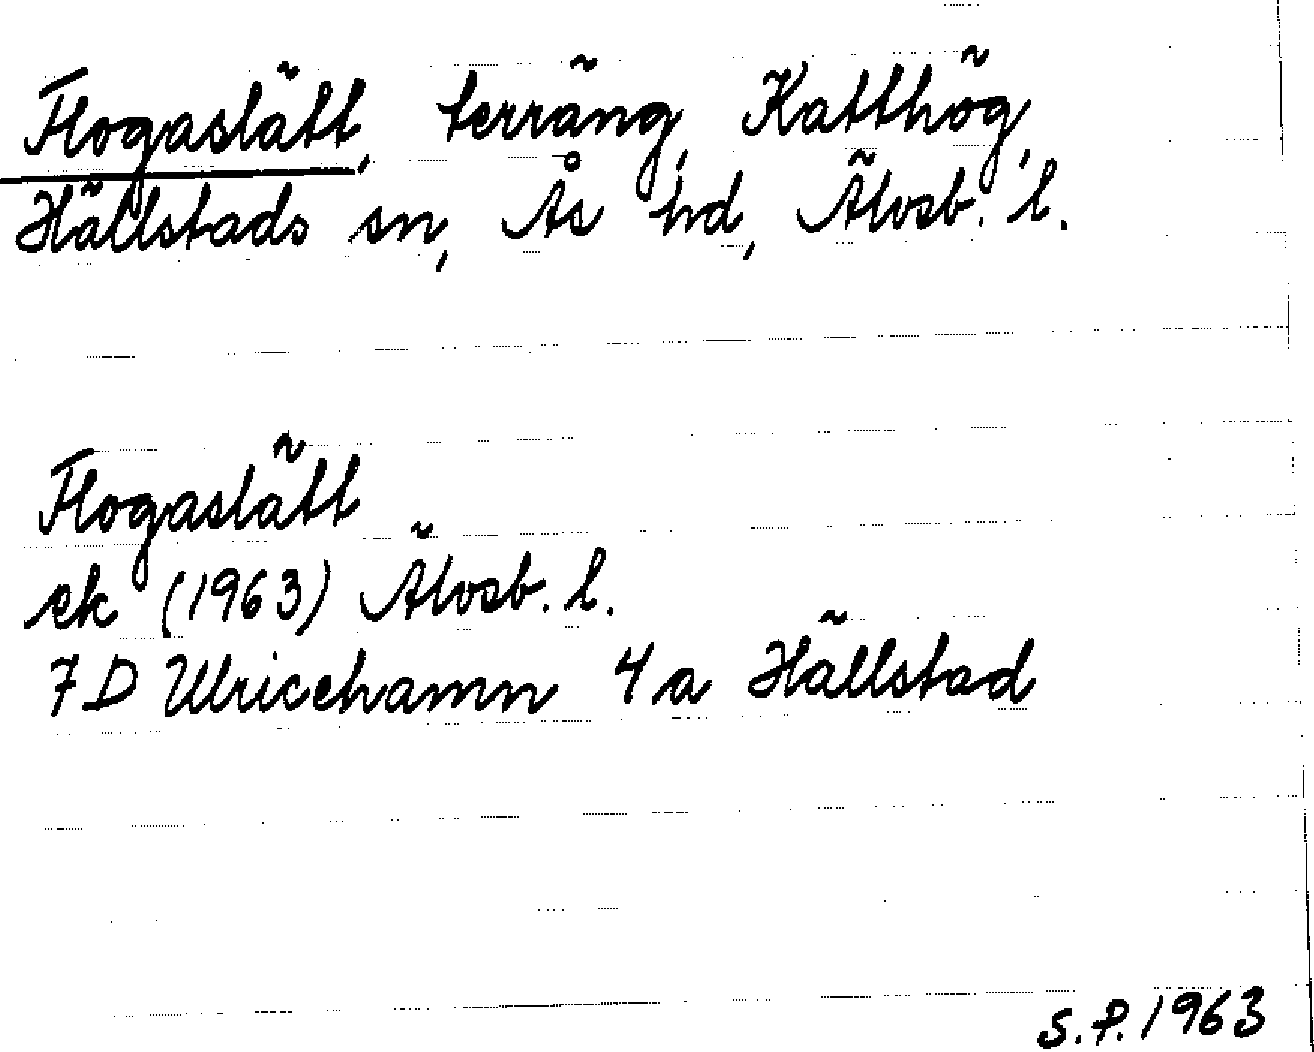 Flogaslätt, terräng, Katthög,
Hällstads sn, Ås hd, Älvsb. l.
Flogaslätt
ek (1963) Älvsb. l.
7D Ulricehamn 4a Hällstad
S.P. 1963